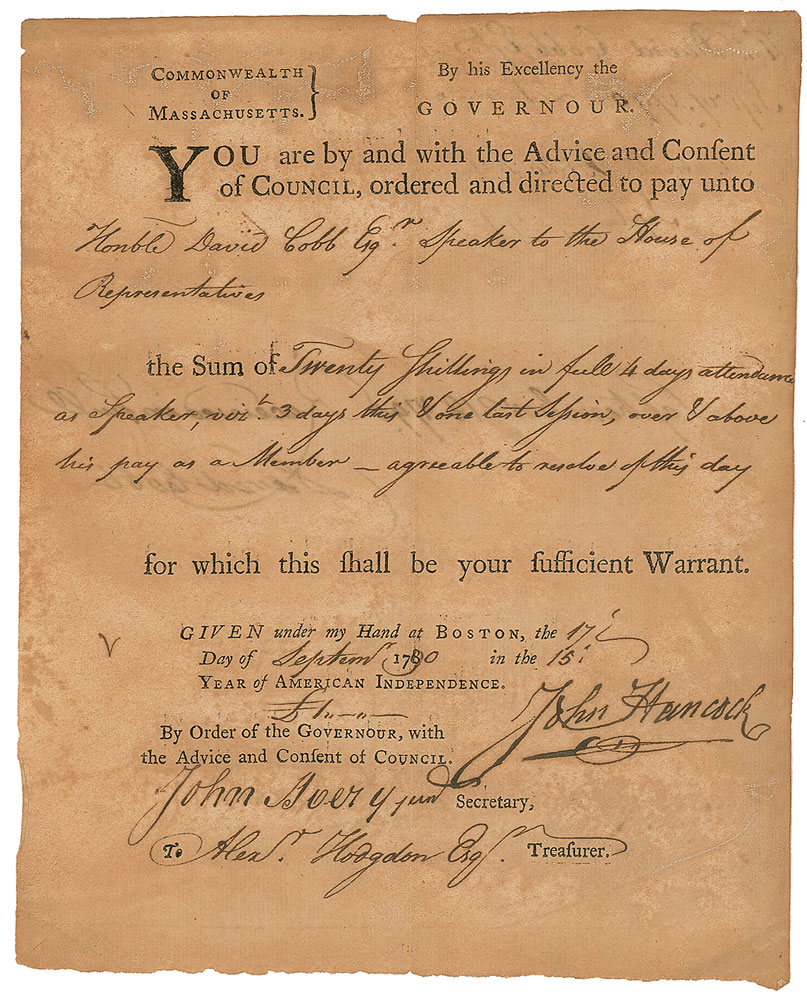 COMMONWEALTH
OF
MASSACHUSETTS.
By his Excellency the
GOVERNOUR.
YOU are by and with the Advice and Conſent
of COUNCIL, ordered and directed to pay unto
Honble David Cobb Esqr. Speaker to the House of
Representatives
the Sum of Twenty Shillings in full 4 days attendance
as Speaker, vizt. 3 days this & one last Session, over & above
his pay as a Member — agreable to resolve of this day
for which this ſhall be your ſufficient Warrant.
GIVEN under my Hand at BOSTON, the 17th
Day of Septemr 1790 in the 15th
YEAR of AMERICAN INDEPENDENCE.
£1.–.–
John Hancock
By Order of the GOVERNOUR, with
the Advice and Conſent of COUNCIL.
John Avery junr Secretary,
To Alexr. Hodgdon Esqr. Treaſurer.